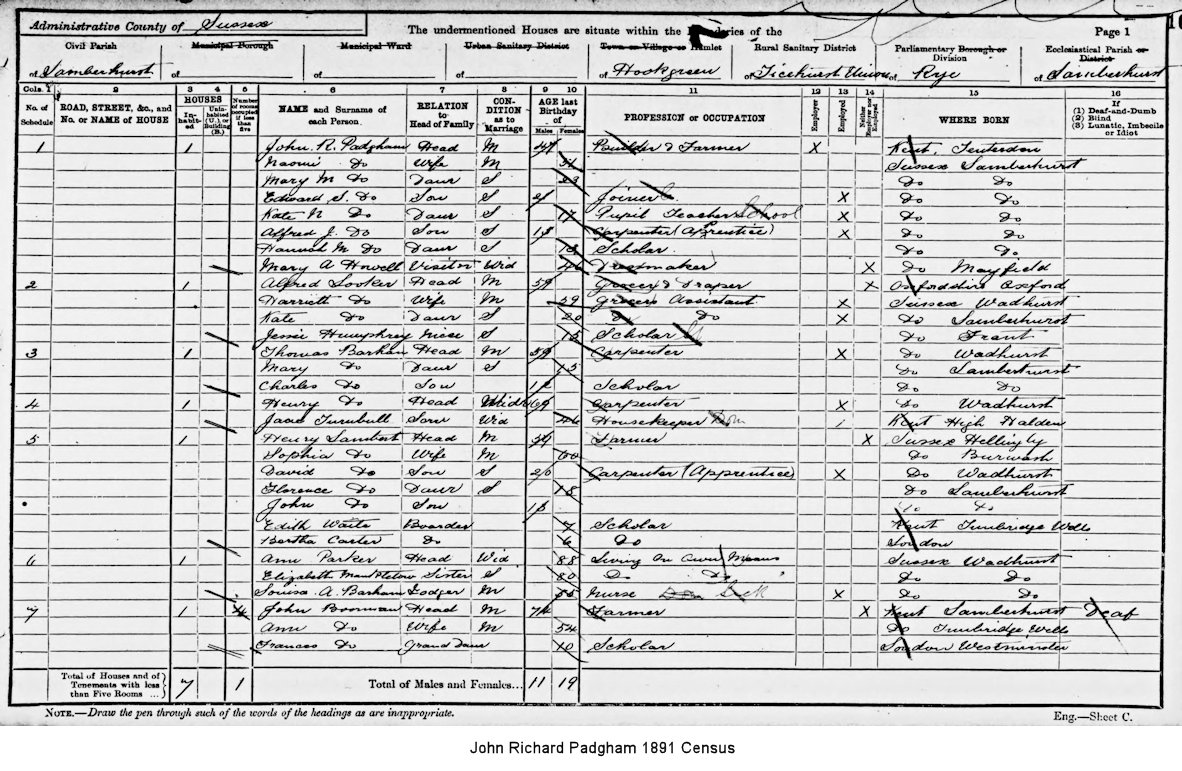 Administrative County of Sussex
The undermentioned Houses are situate within the Boundaries of the
Page 1
Civil Parish
Municipal Borough
Municipal Ward
Urban Sanitary District
Town or Village or Hamlet
Rural Sanitary District
Parliamentary Borough or Division
Ecclesiastical Parish or District
of Lamberhurst of of of of Hookgreen of Ticehurst Union of Rye of Lamberhurst
Cols. 1 2 3 4 5 6 7 8 9 10 11 12 13 14 15 16
No. of Schedule
ROAD, STREET, &c., and No. or NAME of HOUSE
HOUSES
Inhabited
Uninhabited (U.), or Building (B.)
Number of rooms occupied if less than five
NAME and Surname of each Person.
RELATION to Head of Family
CONDITION as to Marriage
AGE last Birthday of
Males Females
PROFESSION or OCCUPATION
Employer
Employed
Neither Employer nor Employed
WHERE BORN
If
(1) Deaf-and-Dumb
(2) Blind
(3) Lunatic, Imbecile or Idiot
1 1 John R. Padgham Head M 47 Builder & Farmer X Kent Tenterden
Naomi Do Wife M Sussex Lamberhurst
Mary M Do Daur S 23 Do Do
Edward S. Do Son S 21 Joiner X Do Do
Kate N Do Daur S 17 Pupil Teacher School X Do Do
Alfred J. Do Son S 15 Carpenter (Apprentice) X Do Do
Hannah M Do Daur S 13 Scholar Do Do
Mary A Howell Visitor Wid 46 Dressmaker X Do Mayfield
2 1 Alfred Looker Head M 59 Grocer & Draper X Oxfordshire Oxford
Harriett Do Wife M 59 Grocers Assistant X Sussex Wadhurst
Kate Do Daur S 20 Do Do X Do Lamberhurst
Jessie Humphrey Niece S 15 Scholar Do Frant
3 1 Thomas Barham Head M 59 Carpenter X Do Wadhurst
Mary Do Daur S 15 Do Lamberhurst
Charles Do Son 12 Scholar Do Do
4 1 Henry Do Head Widr 69 Carpenter X Do Wadhurst
Jane Turnbull Wid 46 Housekeeper Dom Kent High Halden
5 1 Henry Lambert Head M 59 Farmer X Sussex Hellingly
Sophia Do Wife M 60 Do Burwash
David Do Son S 20 Carpenter (Apprentice) X Do Wadhurst
Florence Do Daur S 18 Do Lamberhurst
John Do Son 13 Do Do
Edith Waite Boarder 7 Scholar Kent Tunbridge Wells
Bertha Carter Do 6 Do London
6 1 Ann Parker Head Wid 88 Living On Own Means Sussex Wadhurst
Elizabeth Sister S 80 Do Do Do Do
Louisa A. Barham Lodger M 55 Nurse Sick X Do Do
7 1 4 John Boorman Head M 74 Farmer X Kent Lamberhurst Deaf
Ann Do Wife M 54 Do Tunbridge Wells
Frances Do Grand Daur 10 Scholar London Westminster
Total of Houses and of Tenements with less than Five Rooms ... 7 1 Total of Males and Females... 11 19
NOTE.—Draw the pen through such of the words of the headings as are inappropriate.
Eng.—Sheet C.
John Richard Padgham 1891 Census